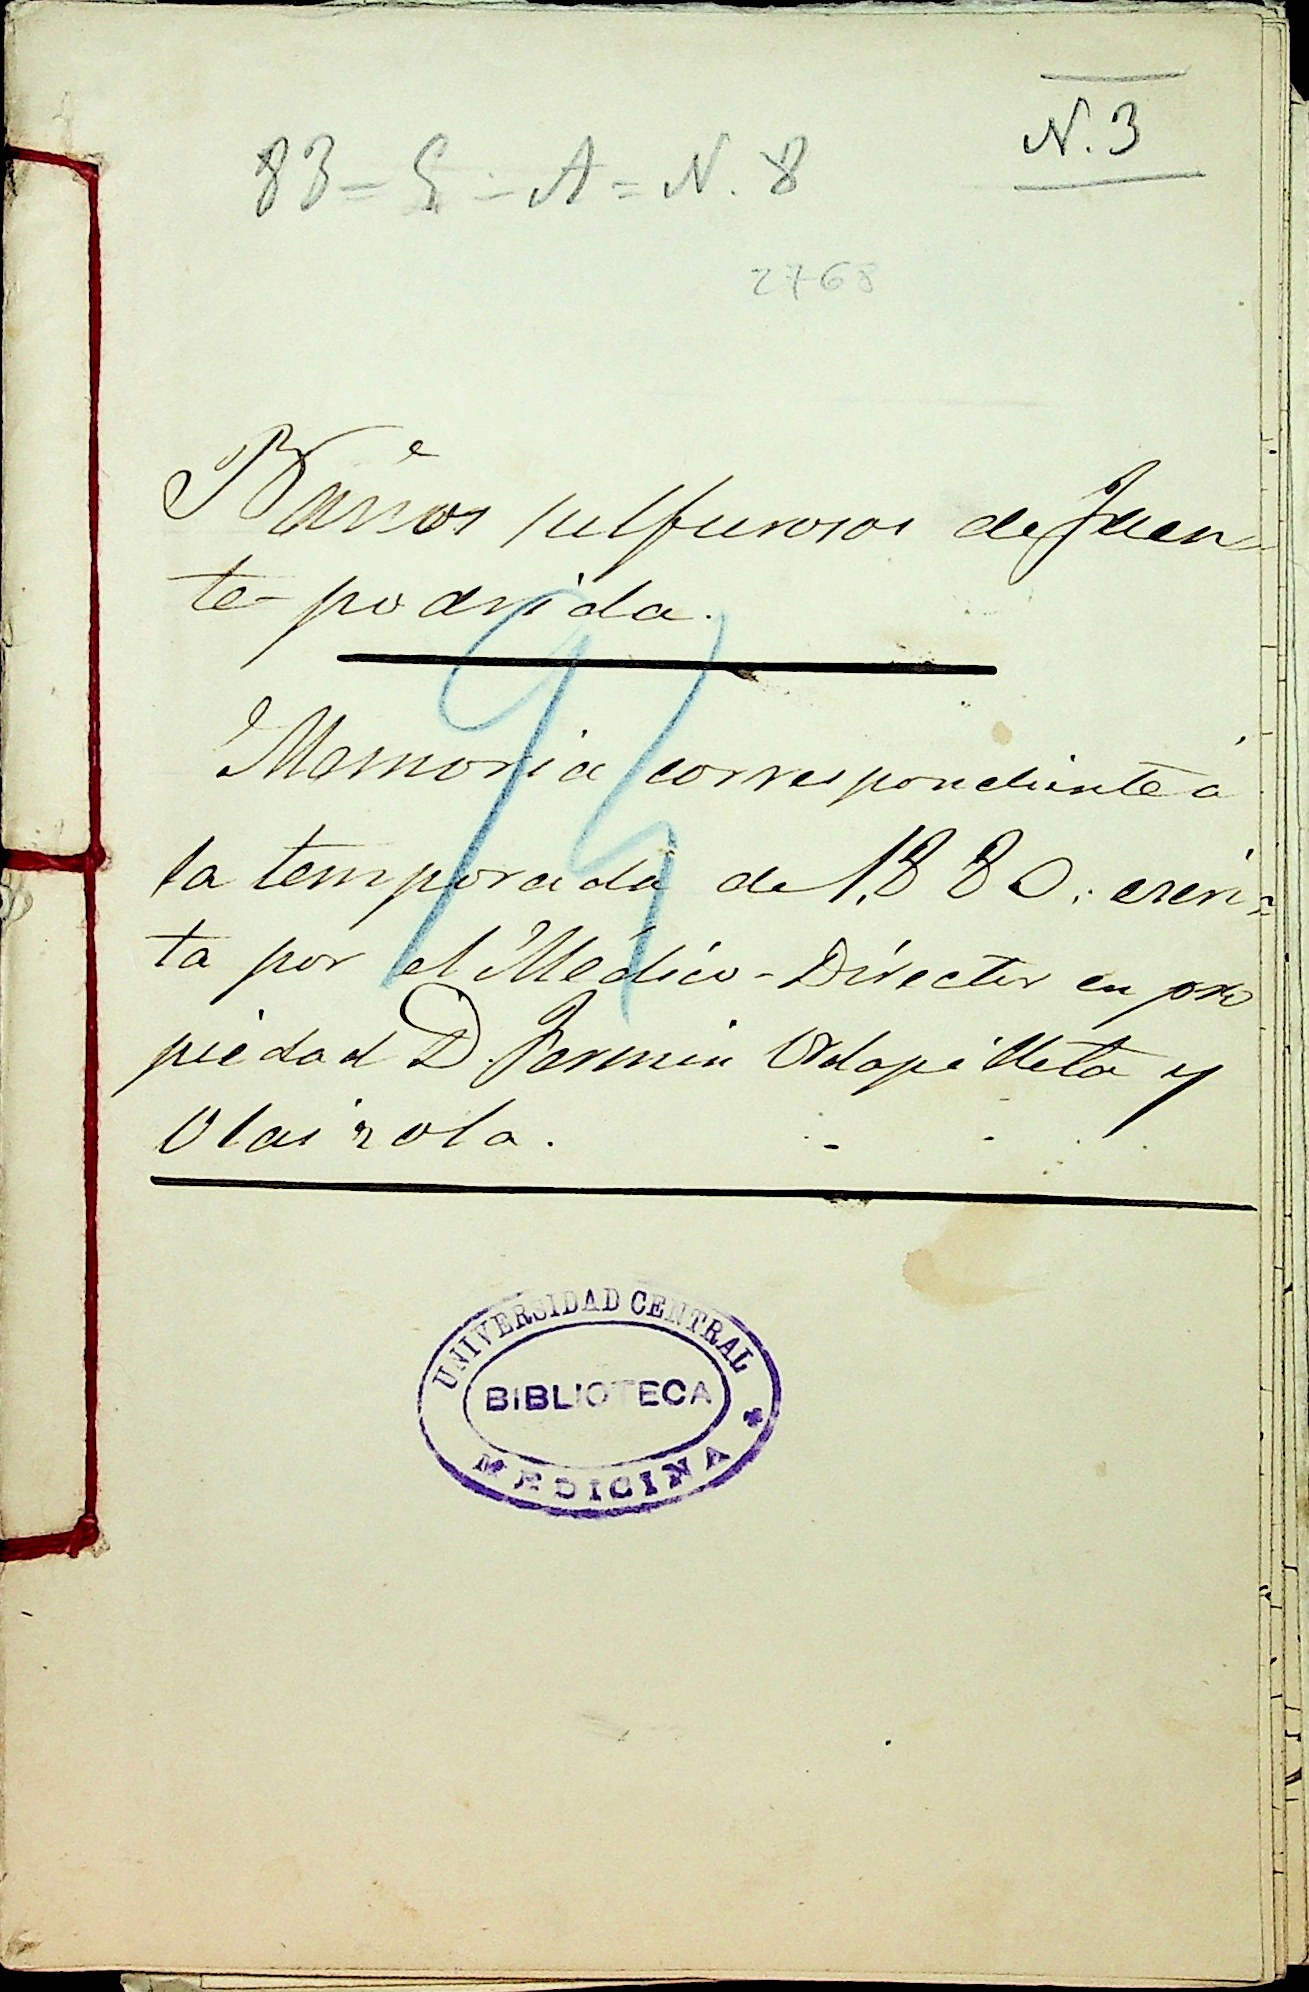 N. 3
83 = S - A = N. 8
2768
Baños sulfurosos de Fuen-
te podrida.
Memoria correspondiente á
la temporada de 1,880, escri-
ta por el Médico-Director en pro
piedad D. Fermin Urdapilleta y
Olaizola.
UNIVERSIDAD CENTRAL
BIBLIOTECA
MEDICINA